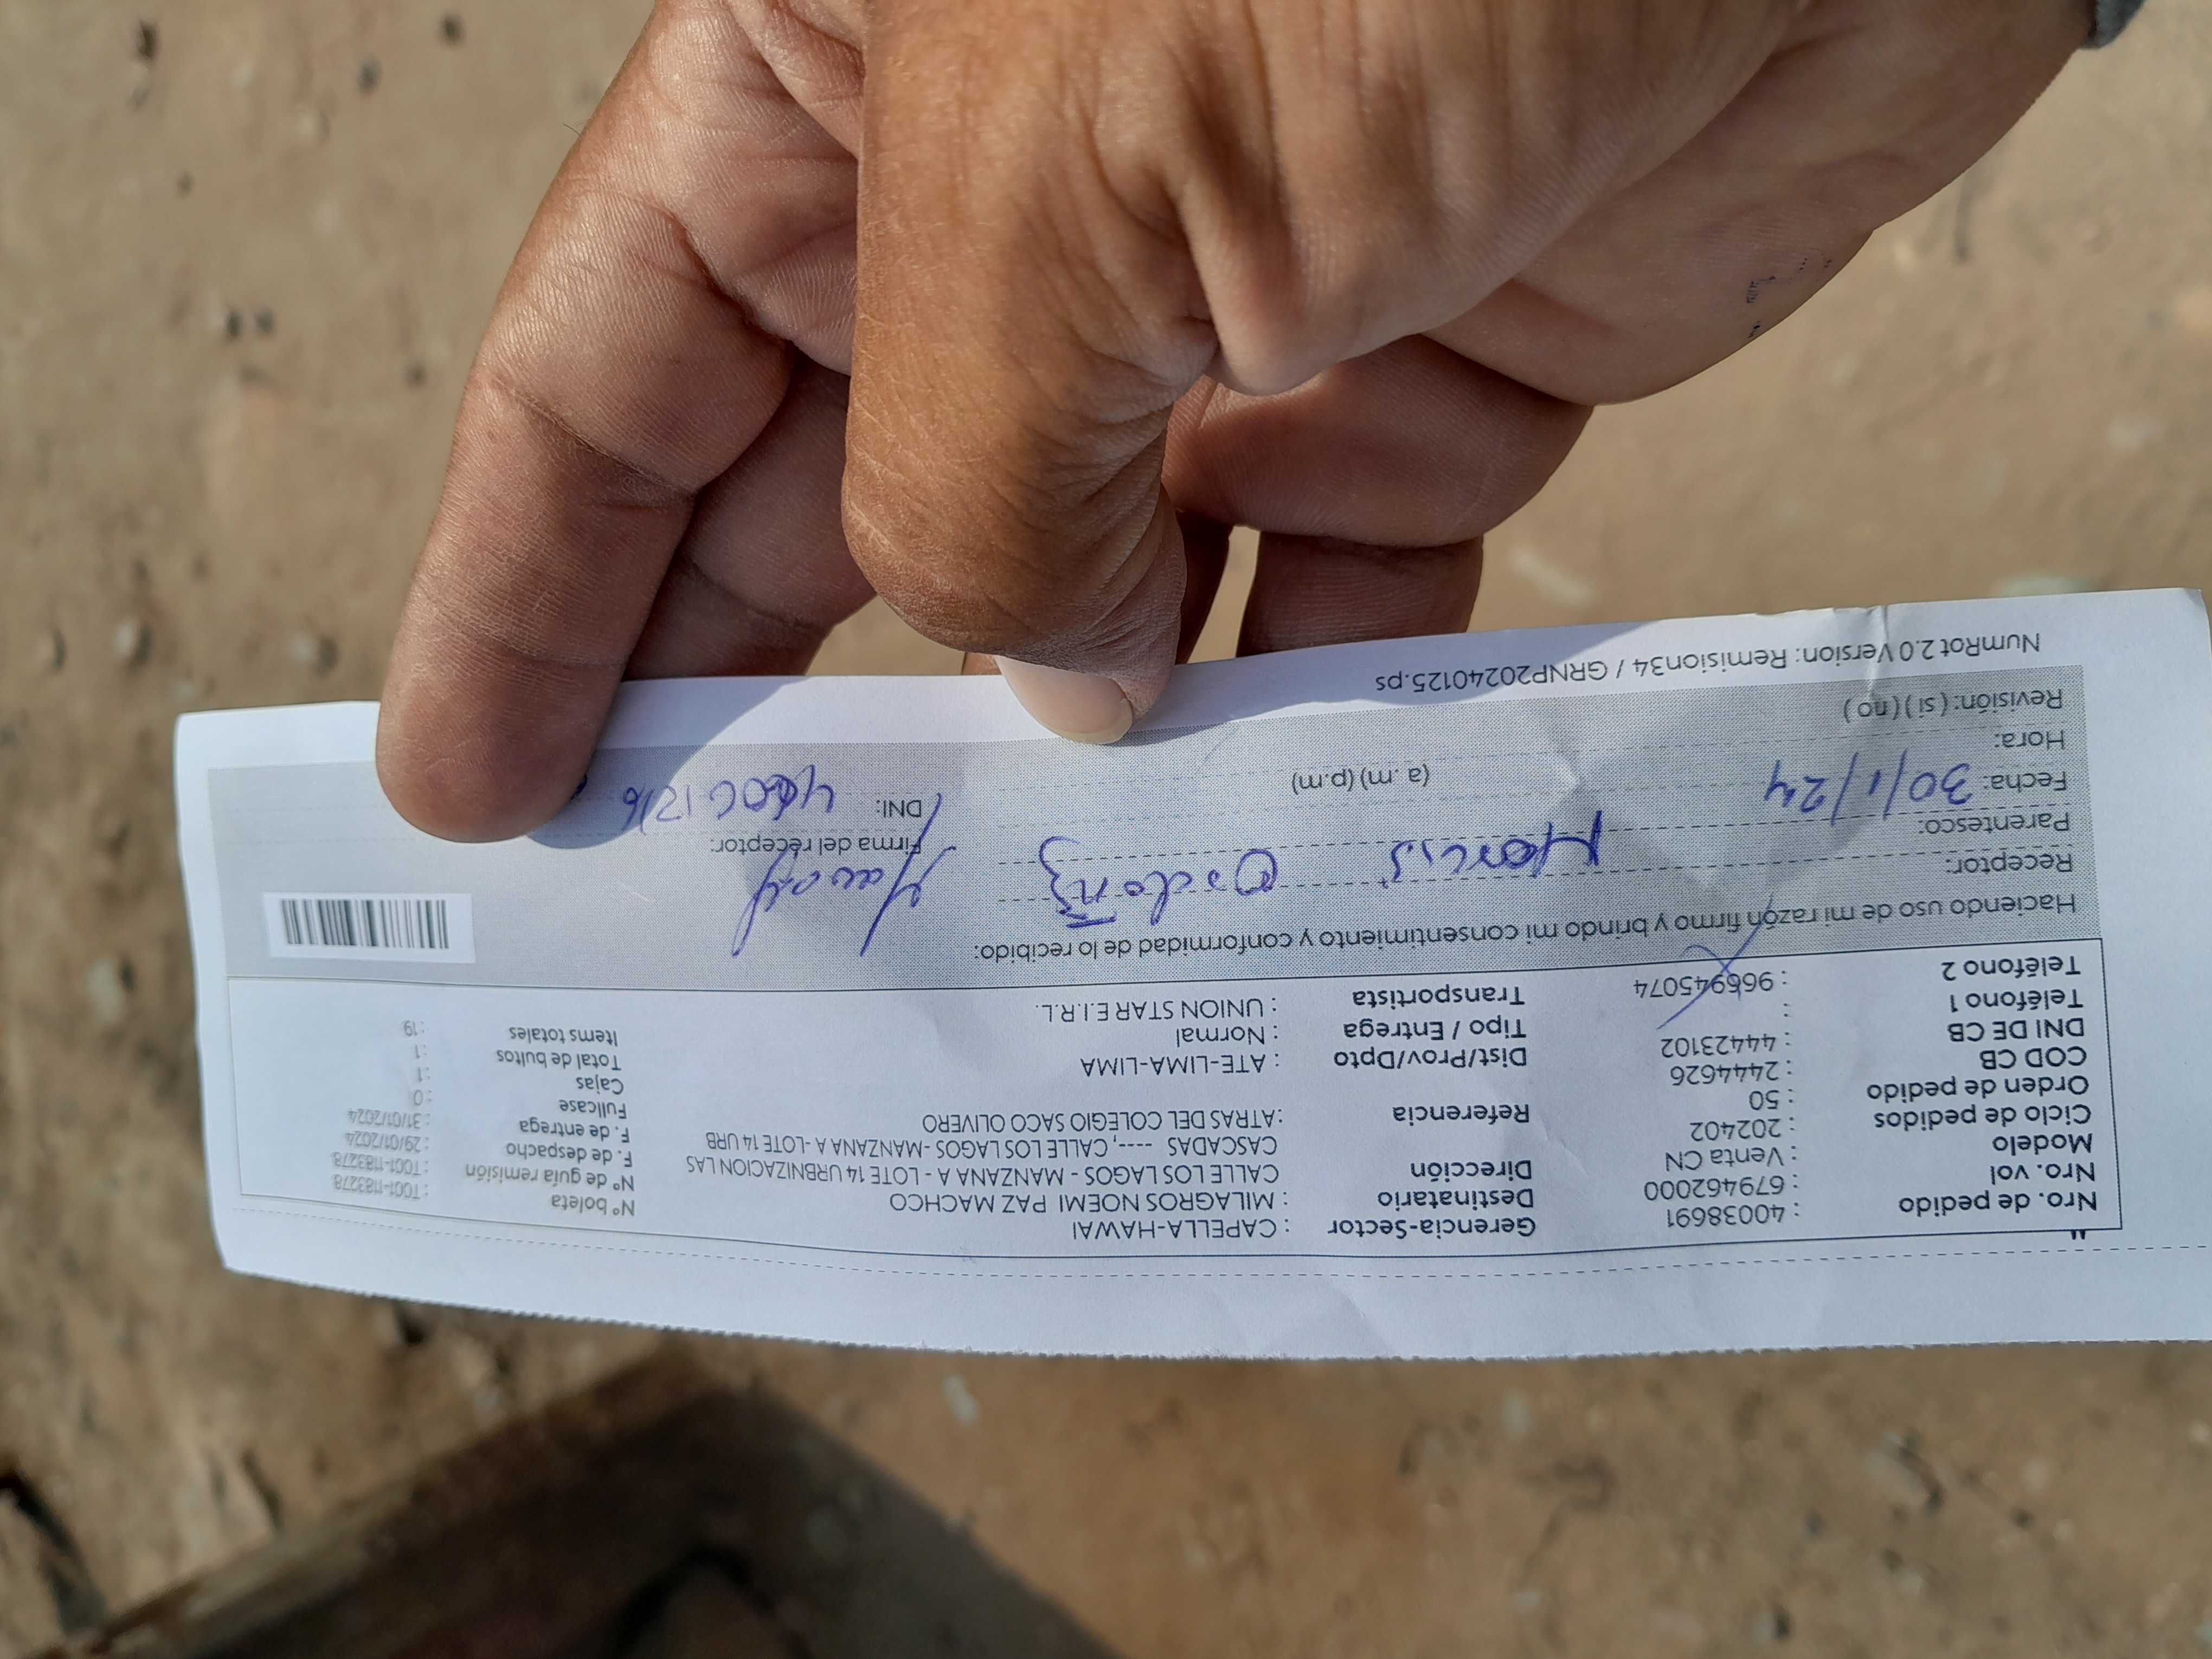 Nro. de pedido : 40038691 Gerencia-Sector : CAPELLA-HAWAI Nº boleta : T001-1183278
Nro. vol : 679462000 Destinatario : MILAGROS NOEMI PAZ MACHCO Nº de guía remisión : T001-1183278
Modelo : Venta CN Dirección CALLE LOS LAGOS - MANZANA A - LOTE 14 URBNIZACION LAS F. de despacho : 29/01/2024
Ciclo de pedidos : 202402 CASCADAS ----, CALLE LOS LAGOS -MANZANA A -LOTE 14 URB F. de entrega : 31/01/2024
Orden de pedido : 50 Referencia :ATRAS DEL COLEGIO SACO OLIVERO Fullcase : 0
COD CB : 2444626 Cajas : 1
DNI DE CB : 44423102 Dist/Prov/Dpto : ATE-LIMA-LIMA Total de bultos : 1
Teléfono 1 : Tipo / Entrega : Normal Items totales : 19
Teléfono 2 : 966945074 Transportista : UNION STAR E.I.R.L.
Haciendo uso de mi razón firmo y brindo mi consentimiento y conformidad de lo recibido:
Receptor:
Parentesco: Firma del receptor:
Fecha: 30/1/24 DNI:
Hora: (a.m) (p.m)
Revisión: ( si ) ( no )
NumRot 2.0 Version: Remision34 / GRNP20240125.ps